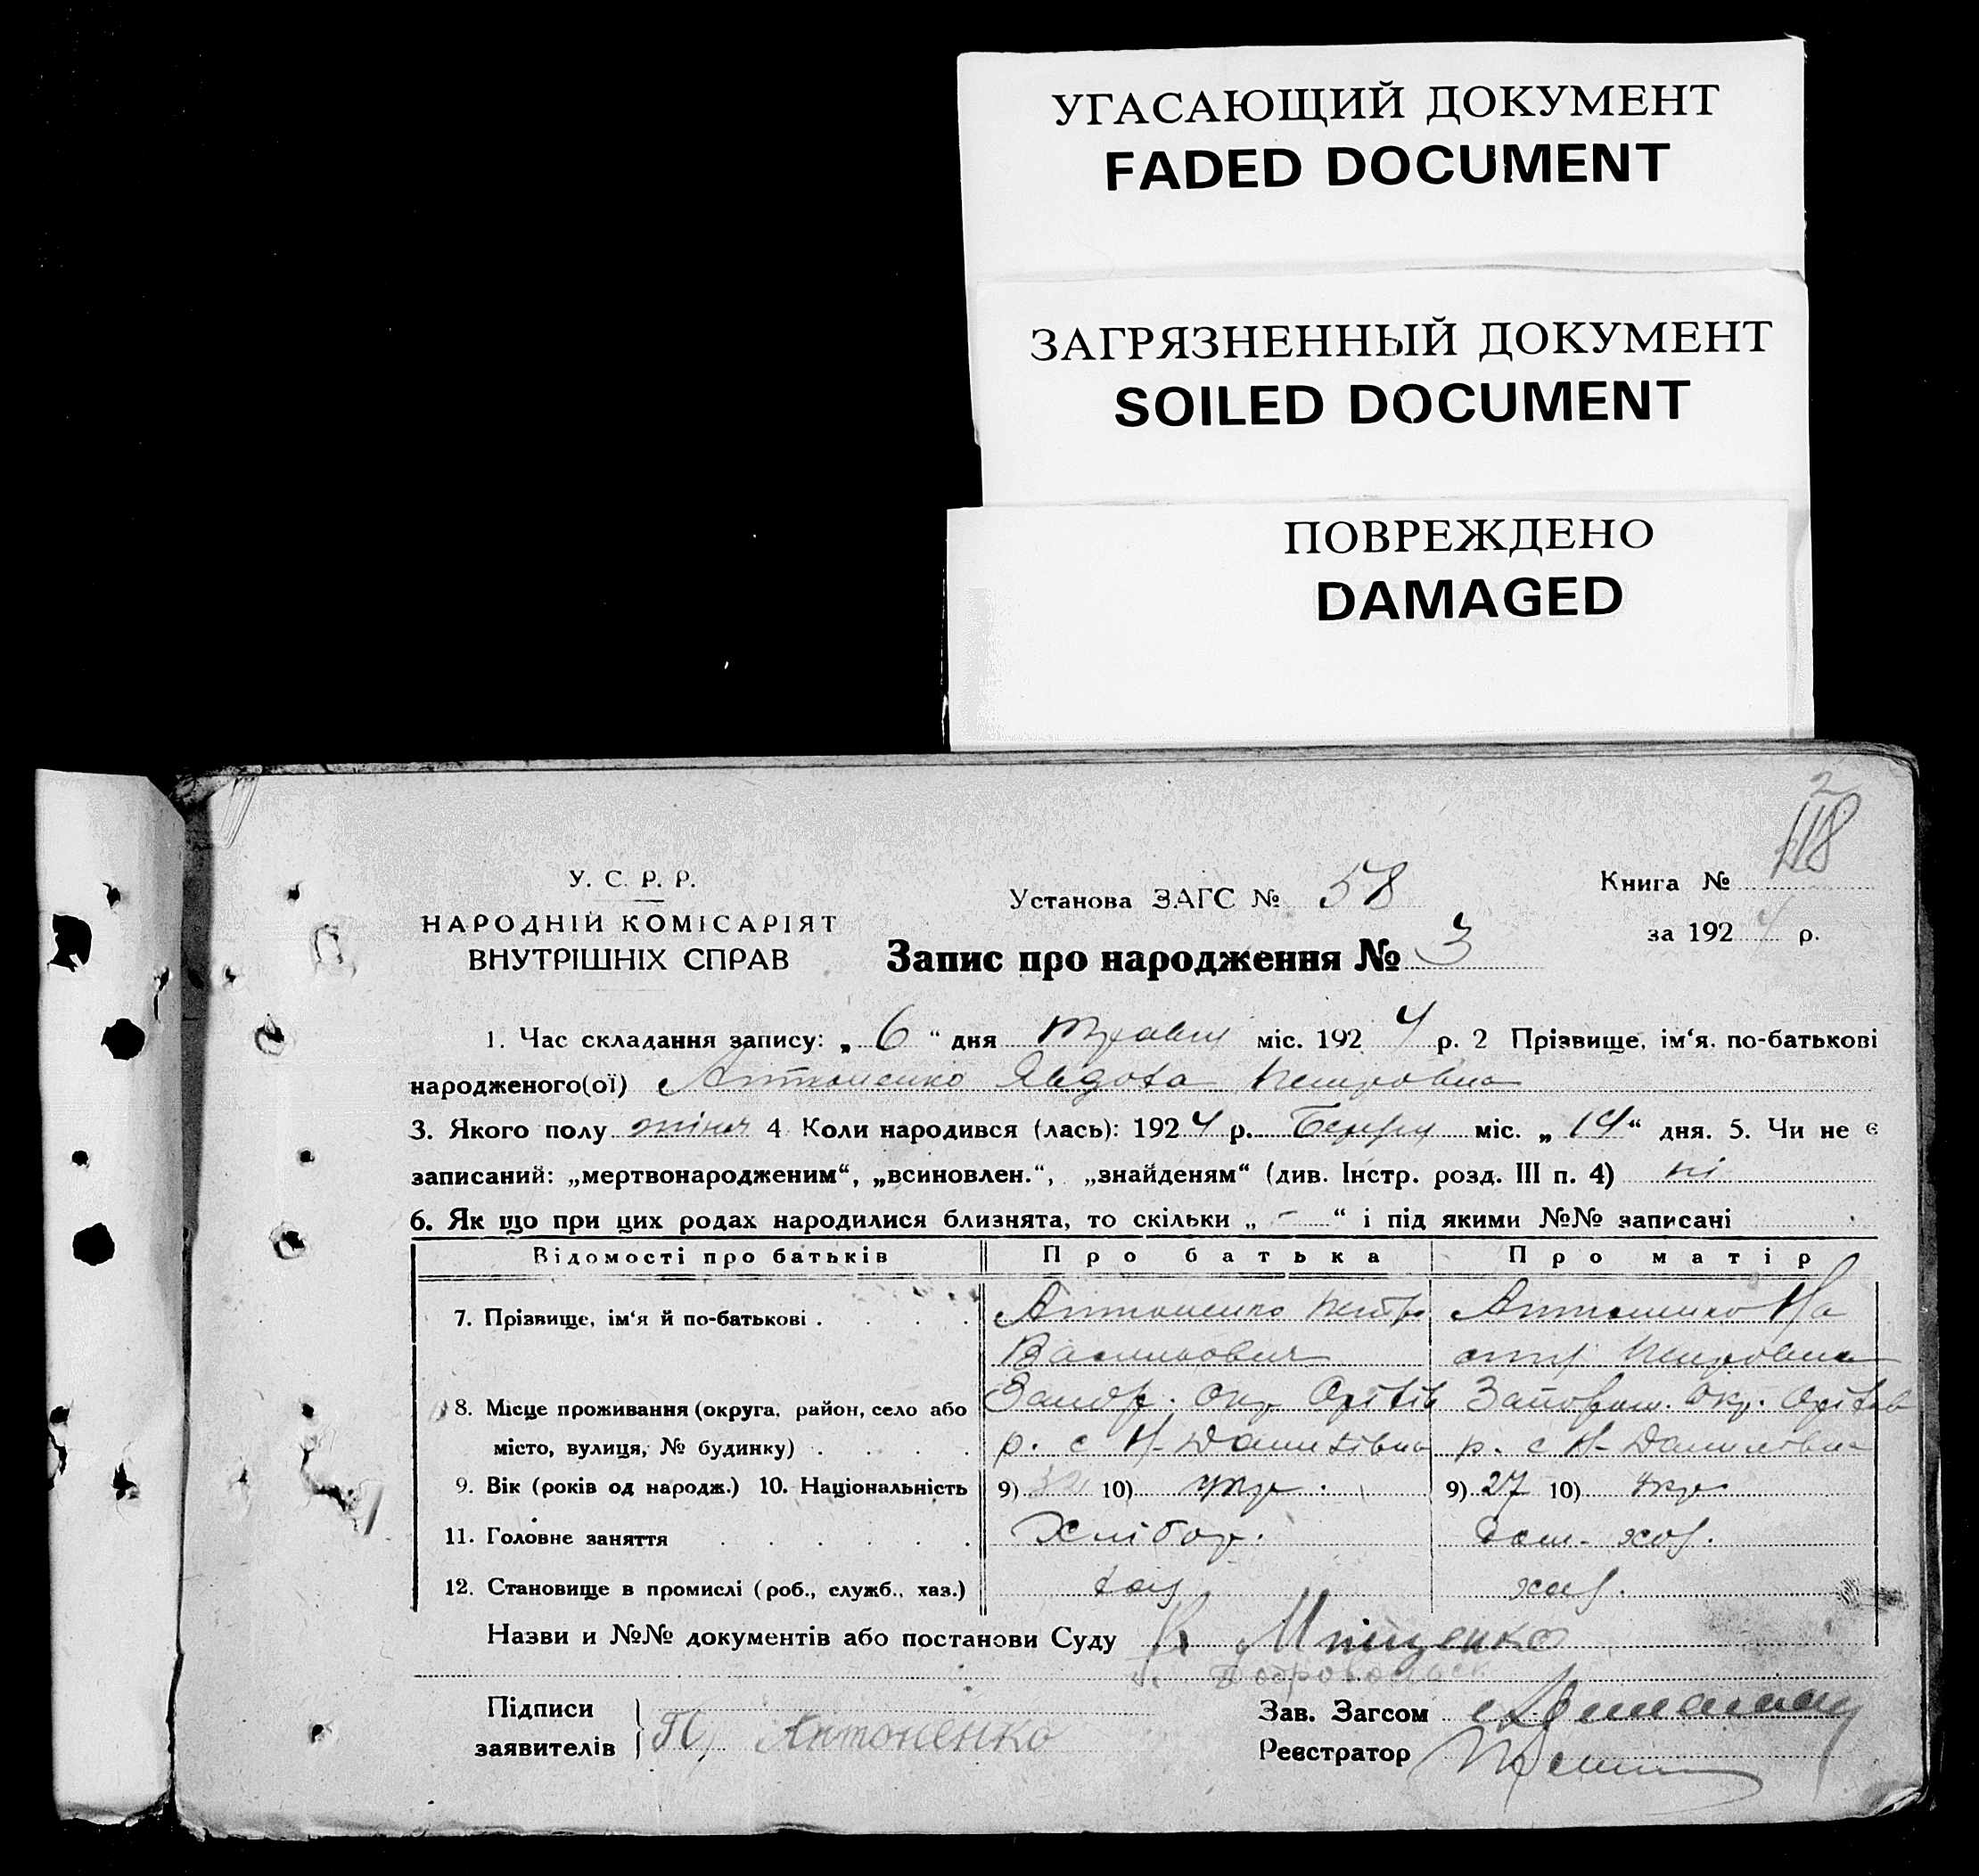 УГАСАЮЩИЙ ДОКУМЕНТ
FADED DOCUMENT
ЗАГРЯЗНЕННЫЙ ДОКУМЕНТ
SOILED DOCUMENT
ПОВРЕЖДЕНО
DAMAGED
2
118
У. С. Р. Р.
НАРОДНІЙ КОМІСАРІЯТ
ВНУТРІШНІХ СПРАВ
Установа ЗАГС № 58
Запис про народження № 3
Книга №
за 1924 р.
1. Час складання запису: „ 6 “ дня травня міс. 1924 р. 2 Прізвище, ім‘я, по-батькові
народженого(ої) Антоненко Явдоха Петровна
3. Якого полу жіноч 4 Коли народився (лась): 1924 р. Берез міс. „ 14 “ дня. 5. Чи не є
записаний: „мертвонародженим“, „всиновлен.“, „знайденям“ (див. Інстр. розд. III п. 4) ні
6. Як що при цих родах народилися близнята, то скільки „ - “ і під якими №№ записані
Відомості про батьків Про батька Про матір
7. Прізвище, ім‘я й по-батькові . . . . Антоненко Петро Антоненко На
Васильович стя Петровна
8. Місце проживання (округа, район, село або Запор. Окр Оріхів Запоріж. Окр. Оріхів
місто, вулиця, № будинку) . . . . р. с Н-Данилівка р. с Н-Данилівка
9. Вік (років од народж.) 10. Національність 9) 32 10) укр. 9) 27 10) укр
11. Головне заняття . . . . . . Хлібор. дом. хоз.
12. Становище в промислі (роб., служб., хаз.) хаз хаз.
Назви и №№ документів або постанови Суду Міщенко
Підписи
заявителів П, Антоненко
Зав. Загсом
Реєстратор